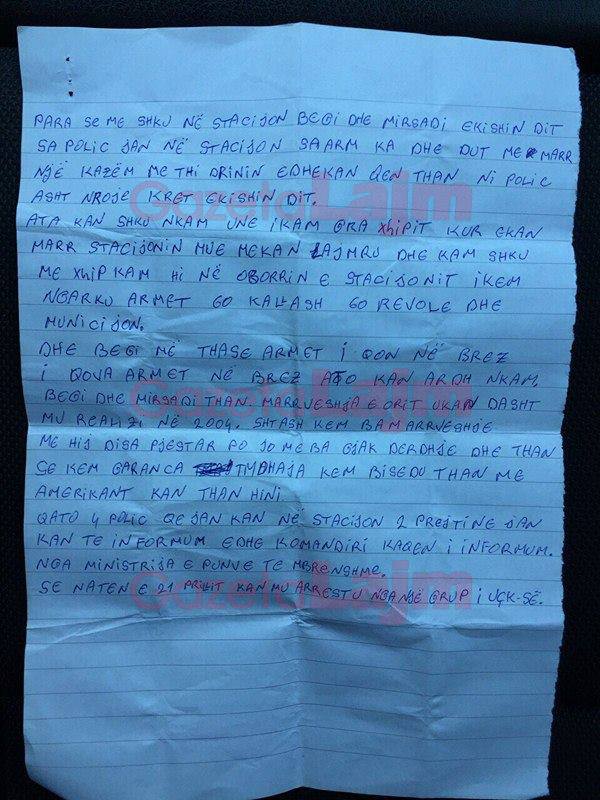 PARA SE ME SHKU NË STACIJON BEGI DHE MIRSADI EKISHIN DIT
SA POLIC JAN NË STACIJON SA ARM KA DHE DUT ME MARR
NJË KAZËM ME THI DRININ EDHE KAN QEN THAN NI POLIC
ASHT NROJE KRET EKISHIN DIT.
ATA KAN SHKU NKAM UNE IKAM GRA XHIPIT KUR EKAN
MARR STACIJONIN MUE MEKAN LAJMRU DHE KAM SHKU
ME XHIP KAM HI NË OBORRIN E STACIJONIT IKEM
NGARKU ARMET 60 KALLASH 60 REVOLE DHE
MUNICIJON.
DHE BEGI MË THASE ARMET I QON NË BREZ
I QOVA ARMET NË BREZ ATO KAN ARDH NKAM.
BEGI DHE MIRSADI THAN. MARRVESHJA E ORIT UKAN DASHT
MU REALIZI NË 2004. SHTASH KEM BAMARRVESHJE
ME HIJ DISA PJESTAR PO JO ME BA GJAK DERDHJE DHE THAN
ÇE KEM GARANCA TMDHAJA KEM BISEDU THAN ME
AMERIKANT KAN THAN HINI.
QATO 4 POLIC QE JAN KAN NË STACIJON 2 PREJTINE JAN
KAN TE INFORMUM EDHE KOMANDIRI KAQEN I INFORMUM.
NGA MINISTRIJA E PUNVE TE MBRËNSHME.
SE NATEN E 21 PRILLIT KAN MU ARRESTU NGA NJË GRUP I UÇK-SË.
Gazeta Lajm
Gazeta Lajm
Gazeta Lajm